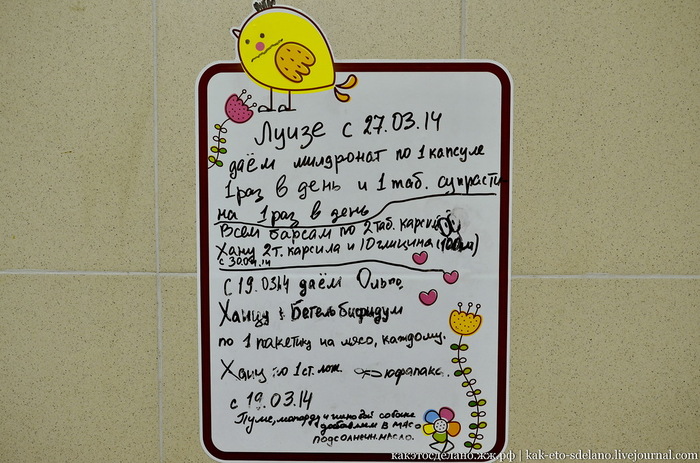 Луизе с 27.03.14
даём милдронат по 1 капсуле
1 раз в день и 1 таб. супрасти
на 1 раз в день
Всем барсам по 2 таб. карсила
Хану 2 т. карсила и 10 глицина
с 30.04.14
С 19.03.14 даём Ольге,
Ханцу Бегель бифидум
по 1 пакетику на мясо, каждому.
Хану по 1 ст. лож.
с 19.03.14
Пуме, леопарду и гиновой собаке
добавляем в мясо
подсолнечн. масло.
какэтосделано.жж.рф | kak-eto-sdelano.livejournal.com